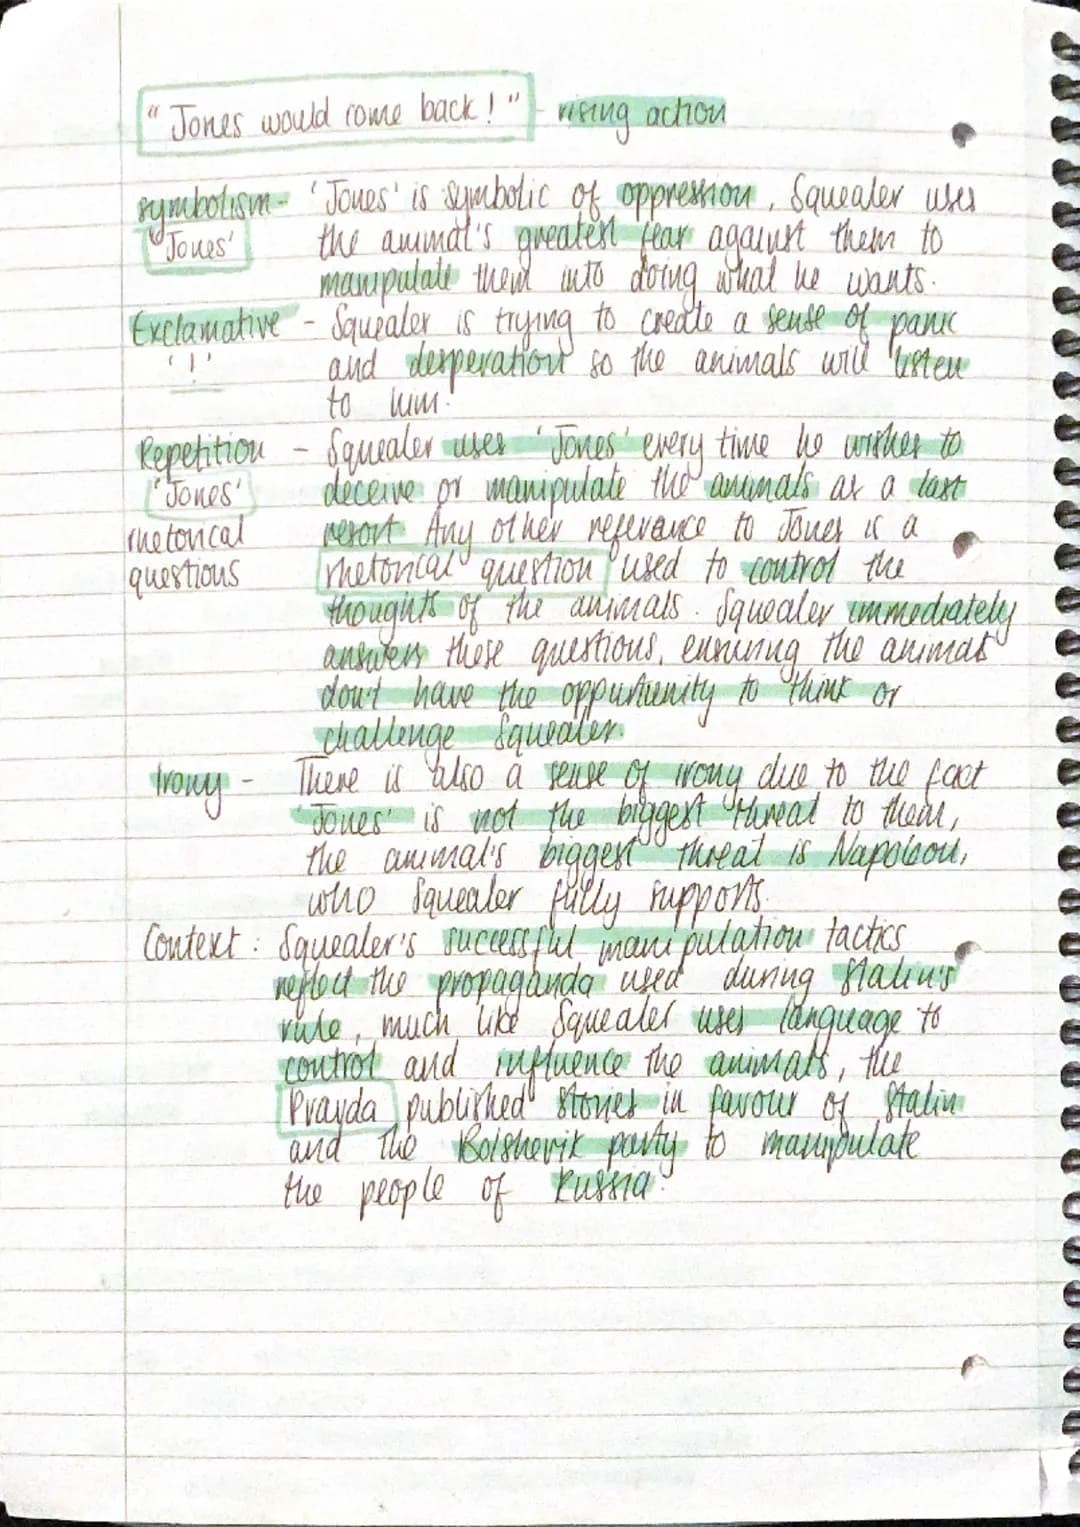 "Jones would come back!" - rising action
symbolism- 'Jones' is symbolic of oppression, Squealer uses
'Jones' the animal's greatest fear against them to
manipulate them into doing what he wants.
Exclamative - Squealer is trying to create a sense of panic
'!' and desperation so the animals will listen
to him.
Repetition - Squealer uses 'Jones' every time he wishes to
'Jones' deceive or manipulate the animals as a last
rhetorical resort. Any other referance to Jones is a
questions rhetorical question used to control the
thoughts of the animals. Squealer immediately
answers these questions, ensuring the animals
don't have the oppurtunity to think or
challenge Squealer.
Irony - There is also a sense of irony due to the fact
'Jones' is not the biggest threat to them,
the animal's biggest threat is Napoleon,
who Squealer fully supports.
Context: Squealer's successful manipulation tactics
reflect the propaganda used during Stalin's
rule, much like Squealer uses language to
control and influence the animals, the
Pravda published stories in favour of Stalin
and the Bolshevik party to manipulate
the people of Russia.